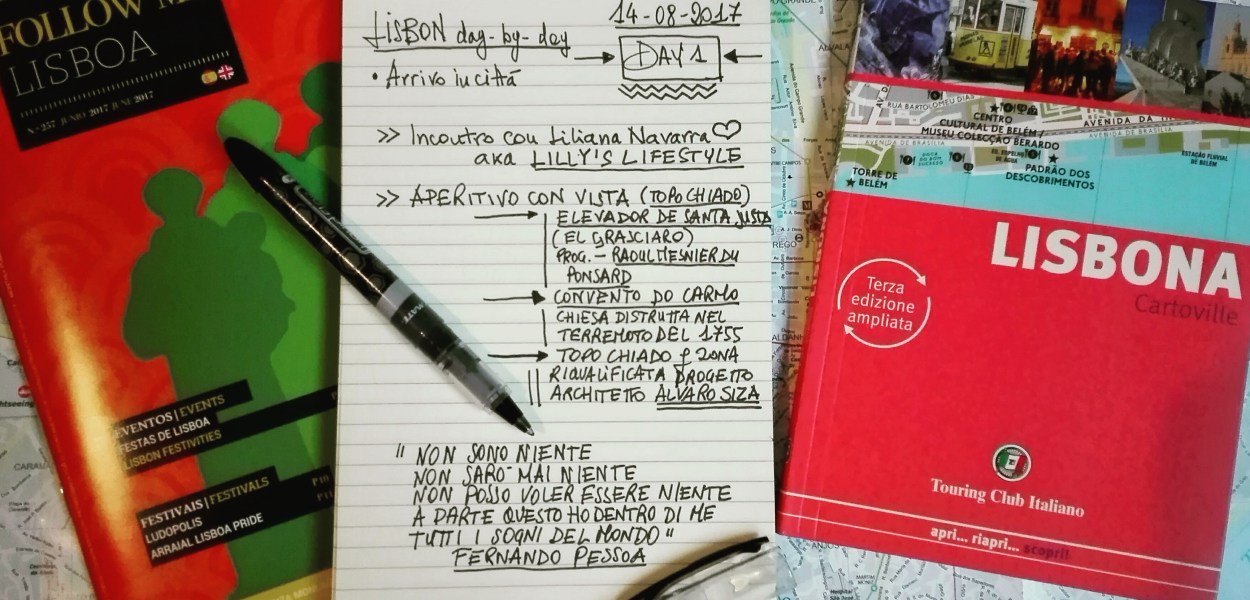 FOLLOW ME
LISBOA
Nº 257 JUNIO 2017 JUNE 2017
EVENTOS | EVENTS
FESTAS DE LISBOA
LISBON FESTIVITIES
FESTIVAIS | FESTIVALS
LUDOPOLIS
ARRAIAL LISBOA PRIDE
14-08-2017
LISBON day-by-day
DAY 1
• Arrivo in città
>> Incontro con Liliana Navarra
aka LILLY'S LIFESTYLE
>> APERITIVO CON VISTA (TOPO CHIADO)
ELEVADOR DE SANTA JUSTA
(EL GRASCIARO)
PROG. - RAOUL MESNIER DU
PONSARD
CONVENTO DO CARMO
CHIESA DISTRUTTA NEL
TERREMOTO DEL 1755
TOPO CHIADO ZONA
RIQUALIFICATA PROGETTO
ARCHITETTO ALVARO SIZA
"NON SONO NIENTE
NON SARÒ MAI NIENTE
NON POSSO VOLER ESSERE NIENTE
A PARTE QUESTO HO DENTRO DI ME
TUTTI I SOGNI DEL MONDO"
FERNANDO PESSOA
RUA BARTOLOMEU DIAS
CENTRO
CULTURAL DE BELÉM /
MUSEU COLECÇÃO BERARDO
AVENIDA DA
AVENIDA DE BRASÍLIA
TORRE DE
BELÉM
PADRÃO DOS
DESCOBRIMENTOS
ESTAÇÃO FLUVIAL
DE BELÉM
LISBONA
Cartoville
Terza
edizione
ampliata
Touring Club Italiano
apri... riapri... scopri!